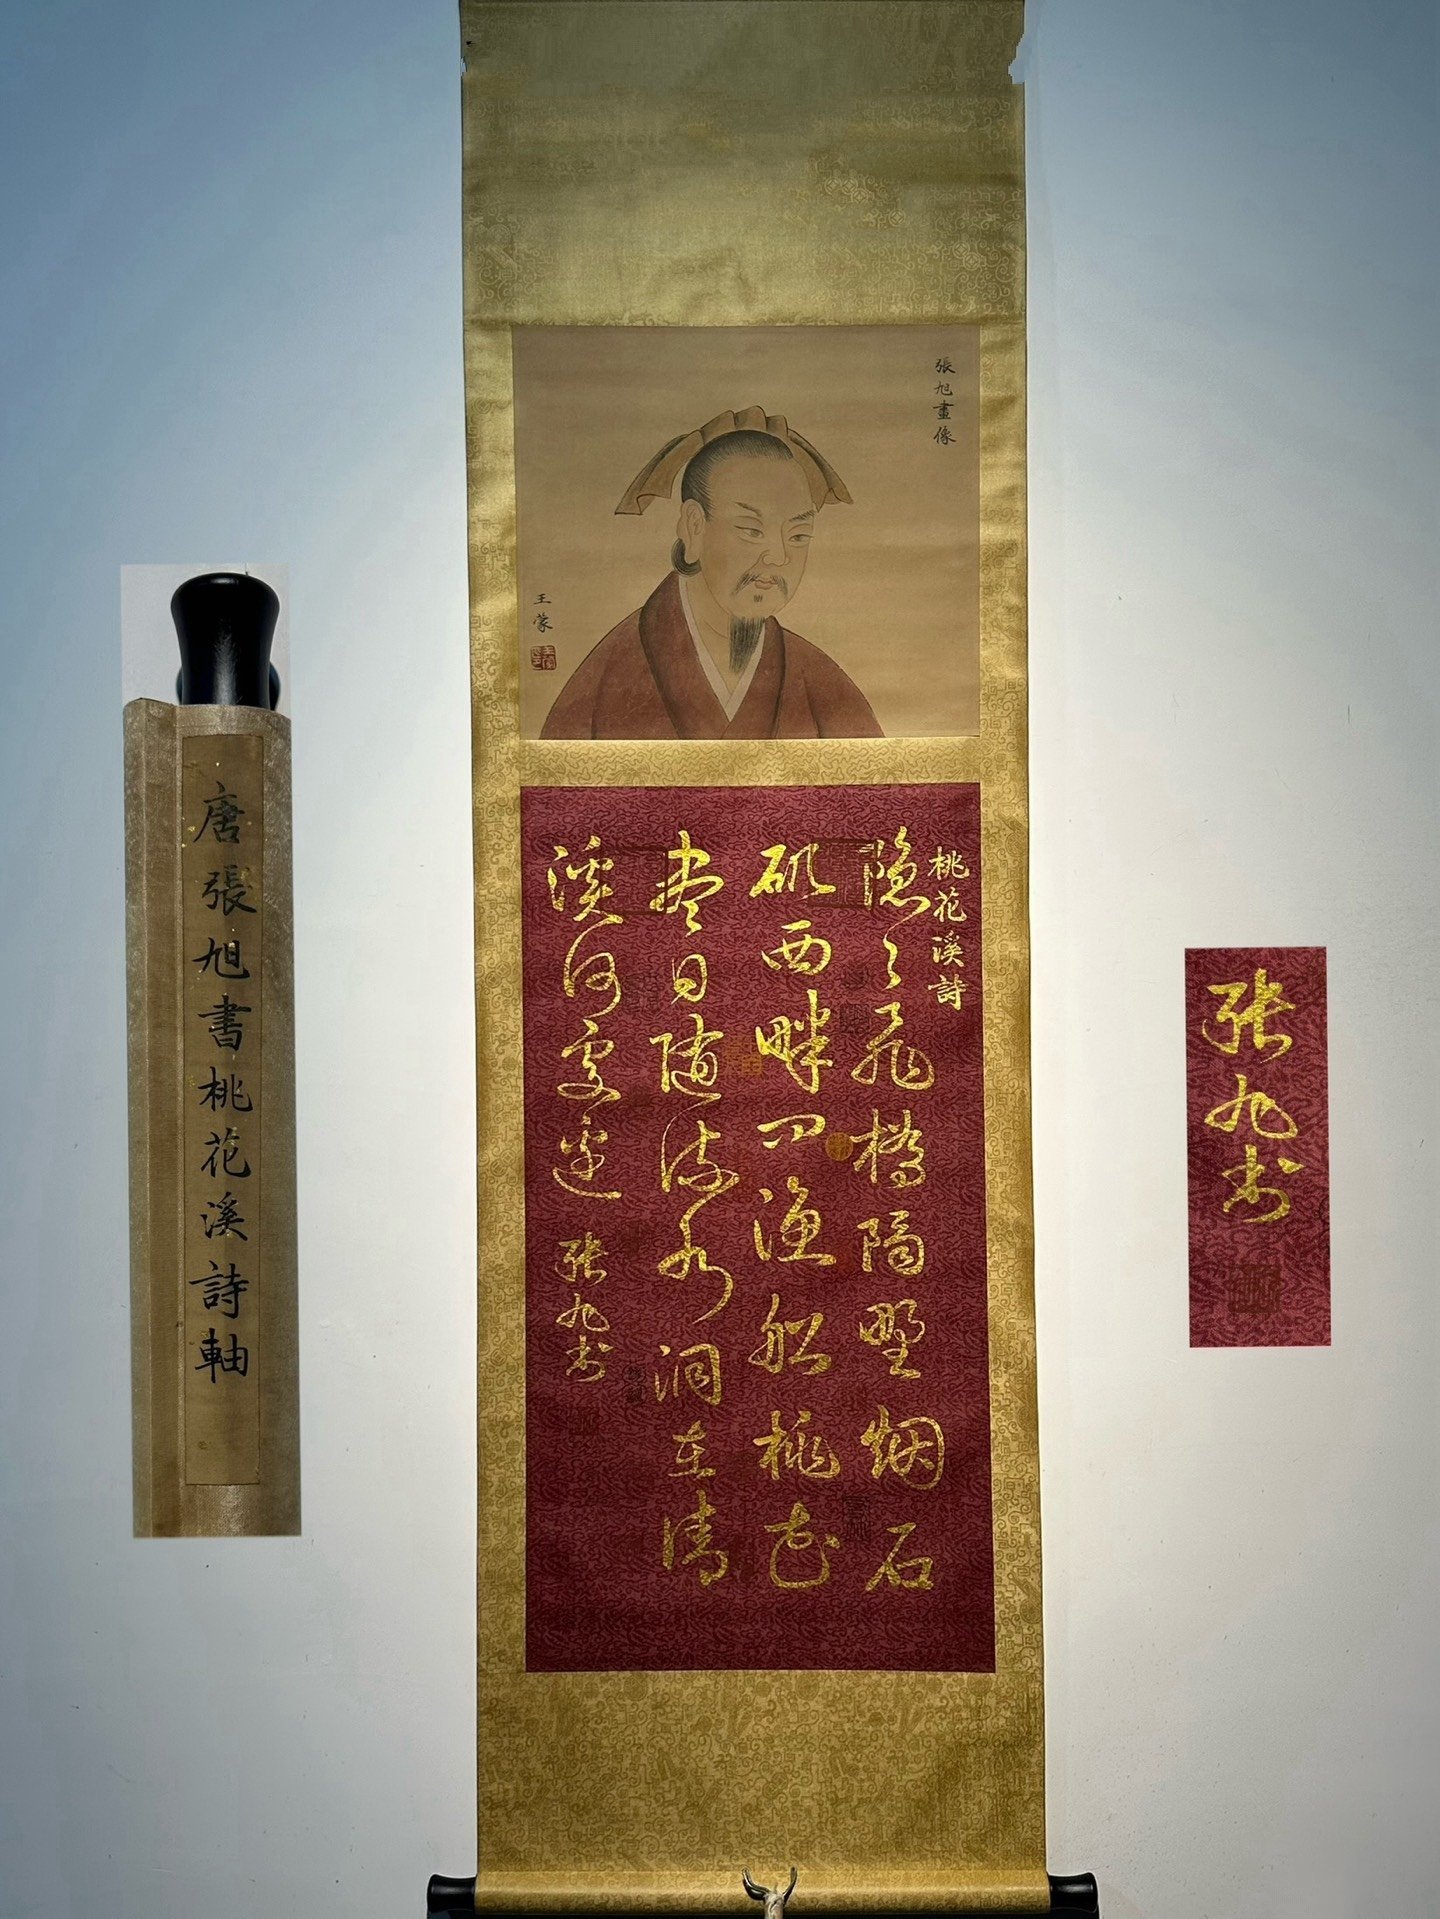 張旭畫像
王蒙
桃花溪詩
隱隱飛橋隔野烟石
磯西畔問漁船桃花
盡日隨流水洞在清
溪何處邊
張旭書
唐張旭書桃花溪詩軸
張旭書